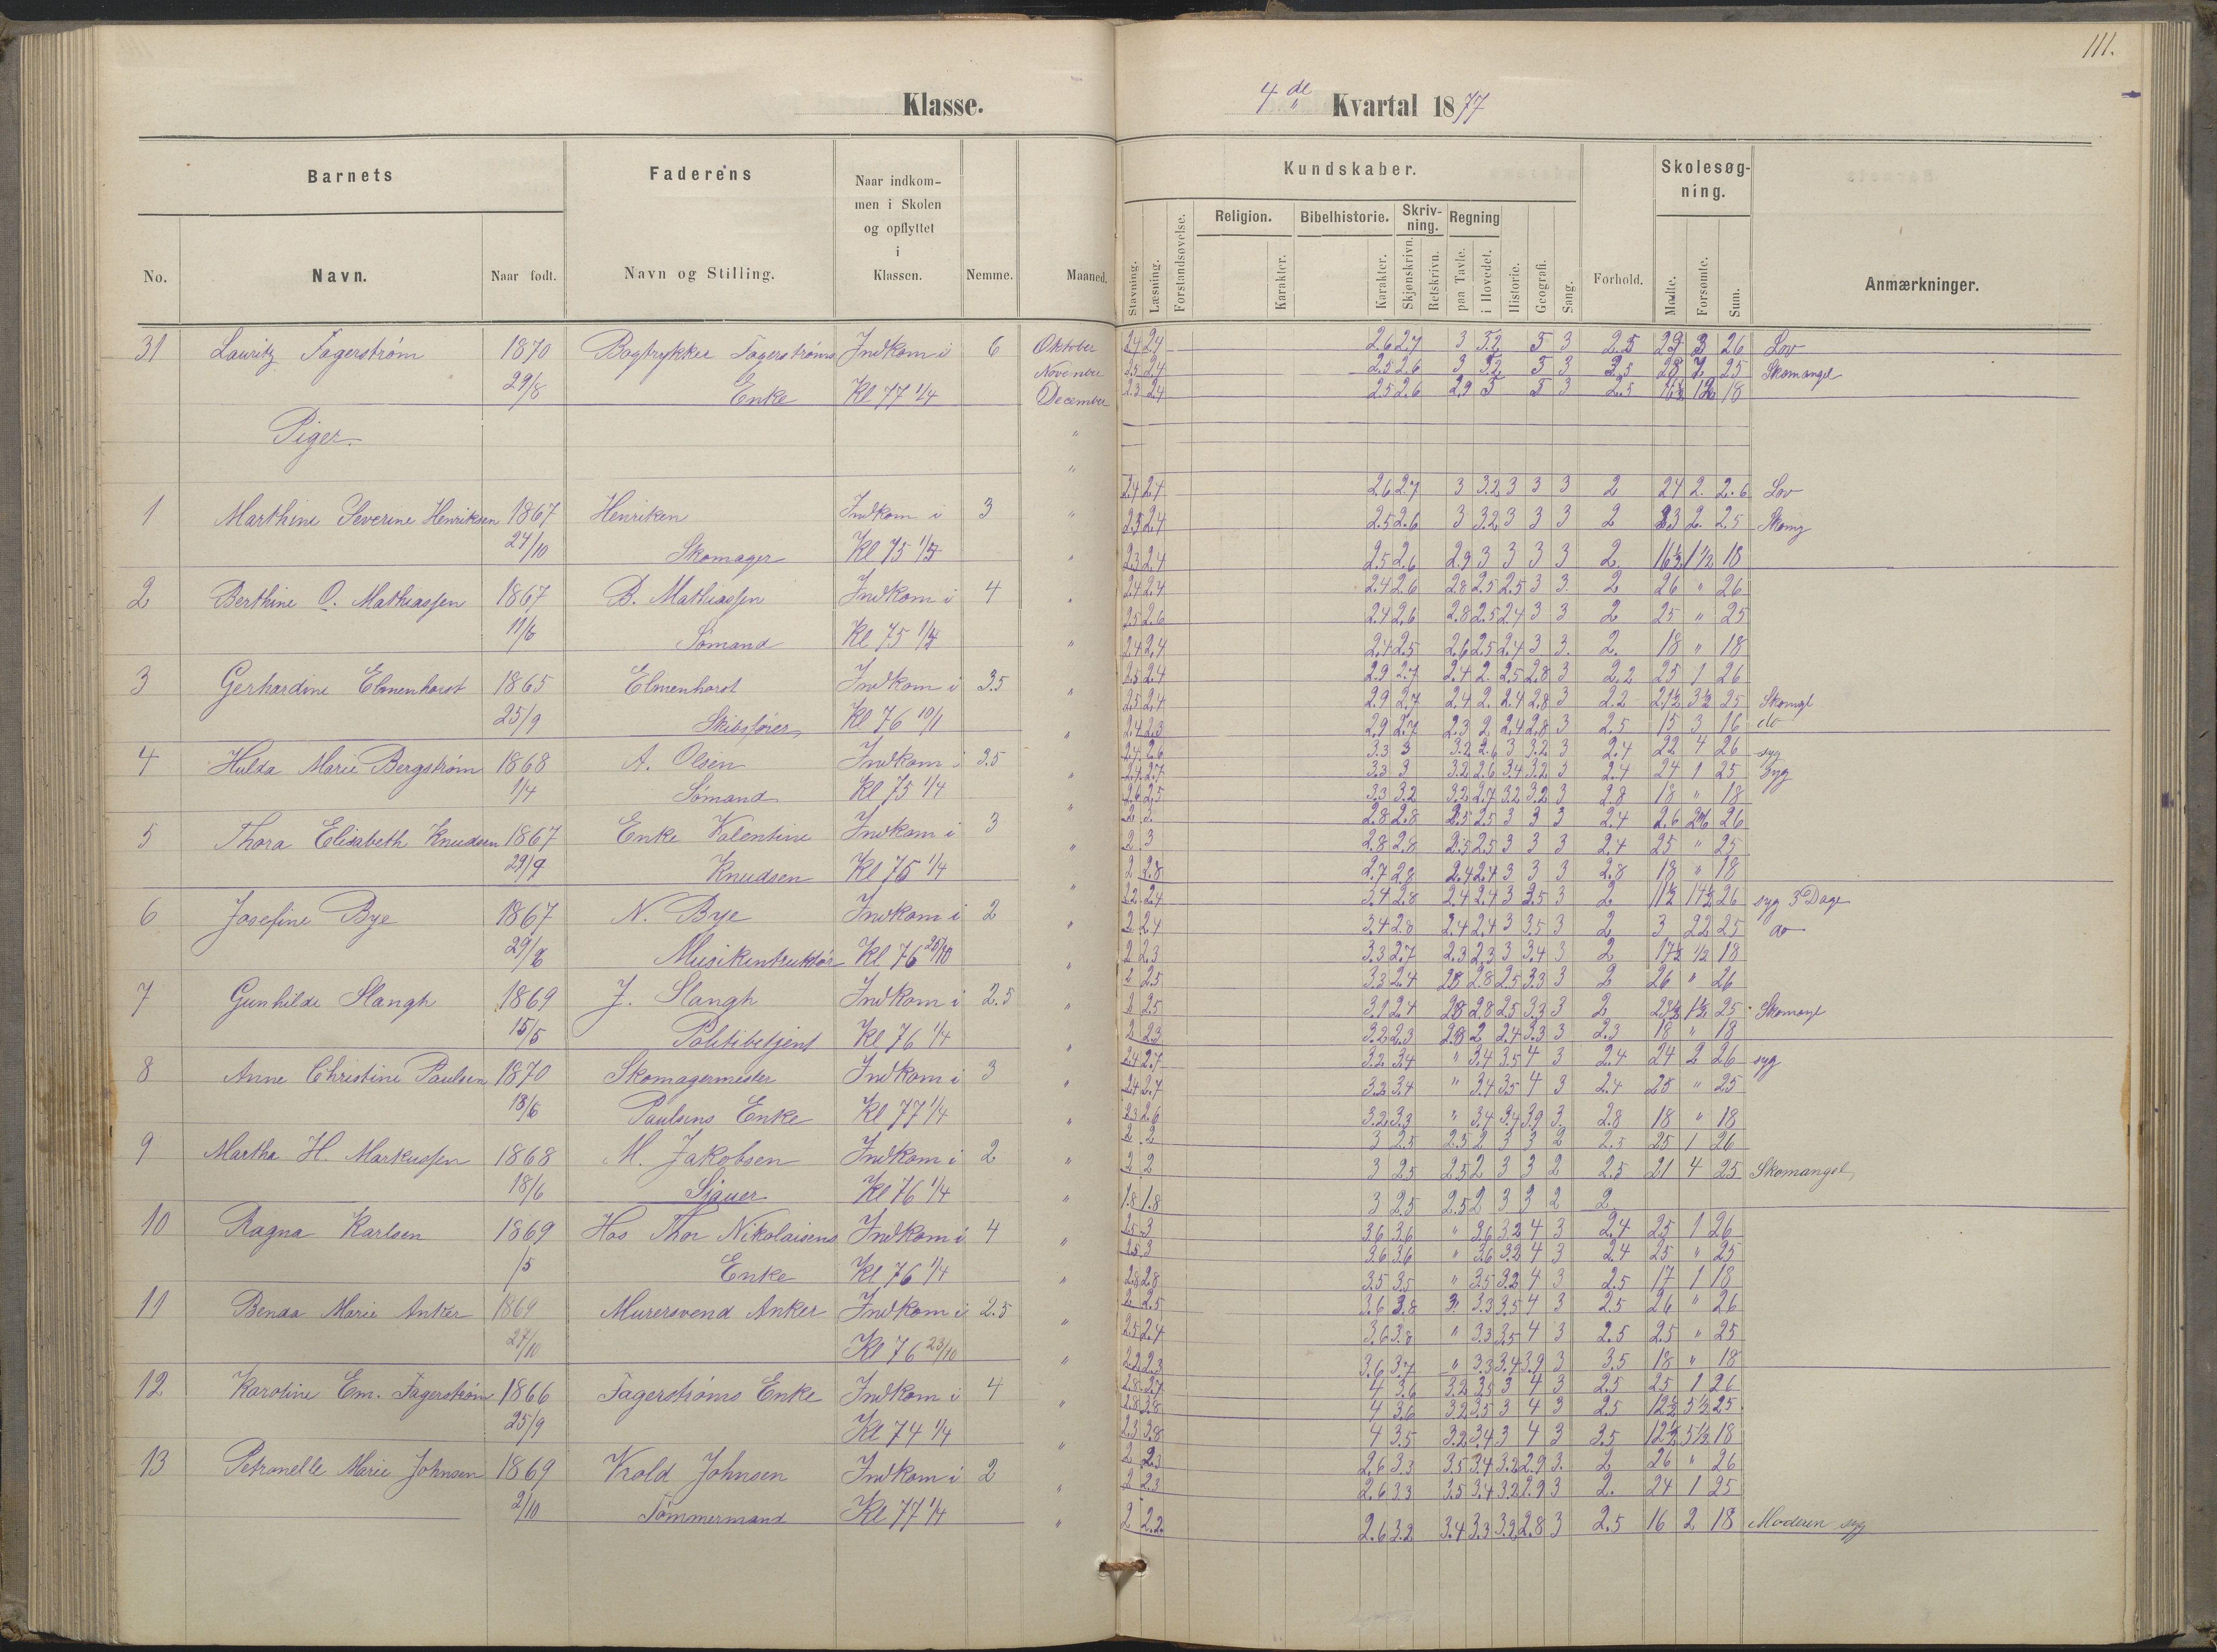 111.
Klasse.
4de Kvartal 1877
Barnets
Faderens
Naar indkom-
men i Skolen
og opflyttet
i
Klassen.
Kundskaber.
Skolesøg-
ning.
Religion. Bibelhistorie. Skriv-
ning. Regning
No. Navn. Naar født. Navn og Stilling. Nemme. Maaned.
Stavning. Læsning. Forstandsøvelse. Karakter. Karakter. Skjønskrivn. Retskrivn. paa Tavle. i Hovedet. Historie. Geografi. Sang. Forhold. Mødte. Forsømte. Sum. Anmærkninger.
31 Lauritz Fagerstrøm 1870 Bogtrykker Fagerstrøms Indkom i 6 Oktober 2.4 2.4 2.6 2.7 3 3.2 3 3 2.5 29 3 26 Lov
November 2.5 2.4 2.5 2.6 3 3.2 3 3 25 Skomangel
29/8 Enke Kl 77 1/4 December 2.3 2.4 2.5 2.6 2.9 3 3 2.5 18
Piger.
1 Marthine Severine Henriksen 1867 Henriken Indkom i 3 2.4 2.4 2.6 2.7 3 3.2 3 3 3 2 24 2. 2.6 Lov
24/10 Skomager Kl 75 2.5 2.4 2.5 2.6 3 3.2 3 3 3 2 23 2. 2.5 Skomg
2.3 2.4 2.5 2.6 2.9 3 3 3 3 2 16½ 1½ 18
2 Berthine O. Mathiassen 1867 B. Mathiassen Indkom i 4 2.4 2.4 2.4 2.6 2.8 2.5 2.5 3 3. 2 26 " 26
11/6 Sømand Kl 75 2.5 2.6 2.4 2.6 2.8 2.5 2.4 3 3 2 25 " 25
2.4 2.4 2.4 2.5 2.6 2.5 2.4 3 3. 2. 18 " 18
3 Gerhardine Elmenhorst 1865 Elmenhorst Indkom i 3.5 2.5 2.4 2.9 2.7 2.4 2. 2.5 2.8 3 2.2 25 1 26
25/9 Skibsfører Kl 76 10/1 2.5 2.4 2.9 2.7 2.4 2. 2.4 2.8 3 2.2 21½ 3½ 25 Skomgl
2.4 2.3 2.9 2.7 2.3 2 2.4 2.8 3 2.5 15 3 16 do
4 Hulda Marie Bergstrøm 1868 A. Olsen Indkom i 3.5 2.4 2.6 3.3 3 3.2 2.6 3 3.2 3 2.4 22 4 26 syg
1/4 Sømand Kl 75 1/4 2.4 2.7 3.3 3 3.2 2.6 3.4 3.2 3 2.4 24 1 25 syg
2.6 2.5 3.3 3.2 3.2 2.7 3.2 3.2 3 2.8 18 " 18
5 Thora Elisabeth Knudsen 1867 Enke Valentine Indkom i 3 2 3 2.8 2.8 2.5 2.5 3 3 3 2.4 26 26
29/9 Knudsen Kl 75 1/4 2 3 2.8 2.8 2.5 2.5 3 3 3 2.4 25 " 25
2 2.8 2.7 2.8 2.4 2.4 3 3 3 2.8 18 " 18
6 Josefine Bye 1867 N. Bye Indkom i 2 2.2 2.4 3.4 2.8 2.4 2.4 3 3.5 3 2 11½ 14½ 26 syg 3 Dage
29/8 Musikintruktør Kl 76 2 2.4 3.4 2.8 2.4 2.4 3 3.5 3 2 3 22 25 do
2 2.3 3.3 2.7 2.3 2.3 3 3.4 3 2 17½ ½ 18
7 Gunhilde Slangh 1869 J. Slangh Indkom i 2.5 2 2.5 3.3 2.4 2.8 2.8 2.5 3.3 3 2 26 " 26
15/5 Politibetjent Kl 76 1/4 2 2.5 3.2 2.4 2.8 2.8 2.5 3.3 3 2 23½ 1½ 25 Skomangl
2 2.3 3.2 2.3 2.8 2 2.4 3.3 3 2.3 18 " 18
8 Anne Christine Paulsen 1870 Skomagermester Indkom i 3 2.4 2.7 3.2 3.4 " 3.4 3.5 4 3 2.4 24 2 26 syg
18/6 Paulsens Enke Kl 77 1/4 2.4 2.7 3.3 3.4 " 3.4 3.5 4 3 2.4 25 " 25
2.3 2.6 3.2 3.3 " 3.4 3.4 3.9 3. 2.8 18 " 18
9 Martha H. Markussen 1868 M. Jakobsen Indkom i 2 2 2 3 2.5 2.5 2 3 3 2 2.5 25 1 26
18/6 Sjauer Kl 76 1/4 2 2 3 2.5 2.5 2 3 3 2 2.5 21 4 25 Skomangel
1.8 1.8 3 2.5 2.5 2 3 3 2 2
10 Ragna Karlsen 1869 Hos Thor Nikolaisens Indkom i 4 2.5 3 3.6 3.6 " 3.6 3.2 4 3 2.4 25 1 26
/5 Enke Kl 76 1/4 2.8 3 3.6 3.6 " 3.6 3.2 4 3 2.4 25 " 25
2.8 2.8 3.5 3.5 " 3.5 3.2 4 3 2.5 17 1 18
11 Benda Marie Anker 1869 Murersvend Anker Indkom i 2.5 2 2.5 3.6 3.8 3.3 3.5 4 3 2.5 26 " 26
27/10 Kl 76 23/10 2.5 2.4 3.6 3.8 " 3.3 3.5 4 3 2.5 25 " 25
2.2 2.3 3.6 3.7 " 3.3 3.4 3.9 3 3.5 18 " 18
12 Karoline Em. Fagerstrøm 1866 Fagerstrøms Enke Indkom i 4 2.8 2.7 4 3.6 3.2 3.5 3 4 3 2.5 25 1 26
25/9 Kl 74 1/4 2.8 3.8 4 3.6 3.2 3.5 3 4 3 2.5 12½ 5½ 25
2.3 3.8 4 3.5 3.2 3.4 3 4 3 3.5 12½ 5½ 18
13 Petronelle Marie Johnsen 1869 Krold Johnsen Indkom i 2 2 2.3 2.6 3.3 3.5 3.4 3.2 2.9 3. 2 26 " 26
2/10 Tømmermand Kl 77 1/4 2 2.3 2.6 3.3 3.5 3.4 3.2 2.9 3 2. 24 1 25
2 2.2. 2.6 3.2 3.4 3.3 3.2 2.8 3 2.5 16 2 18 Moderen syg